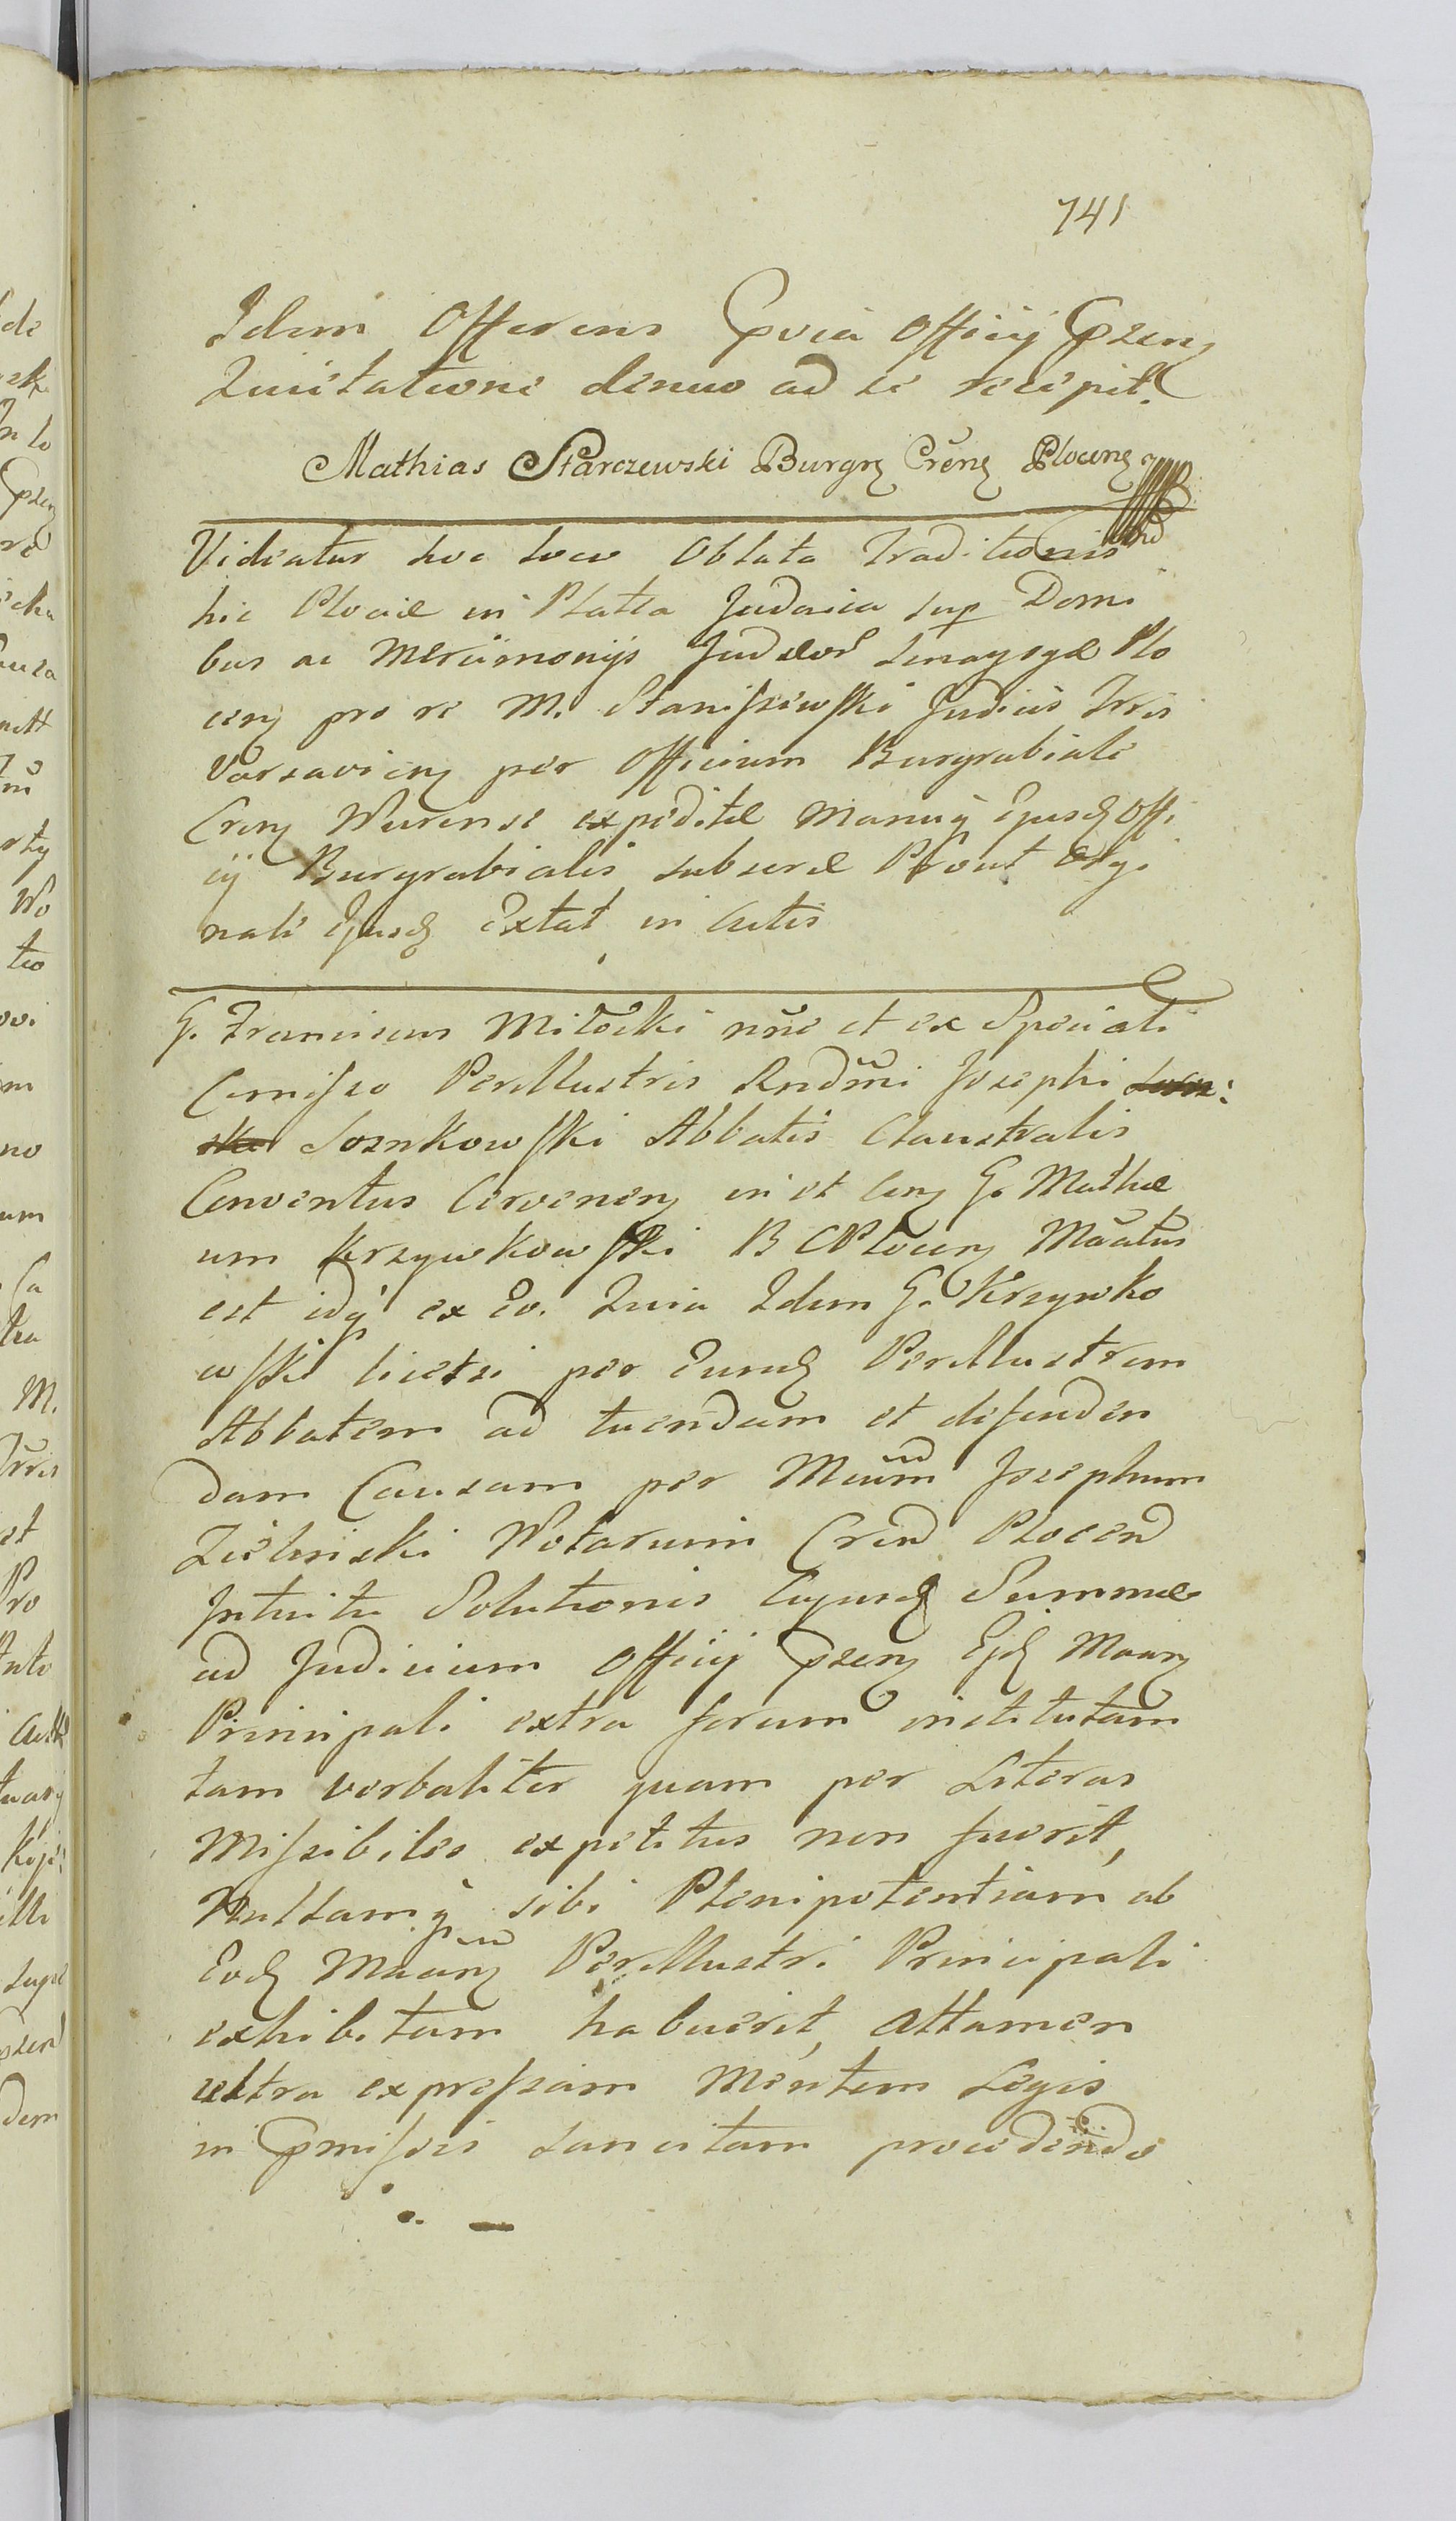 741
Idem Offerens Pviá Officÿ Pszeng
Quietatione denuo ad se recepit.
Mathias Starczewski Burgrg Crēng Ploceng
Videatur hoc loco Oblata Traditionis
hic Plociæ in Platea Judaica sup Domi
bus ac Mercimonÿs Judæor Sinagogæ Plo
ceng pro re M. Staniszewski Judicis Trris
Varsavieng per Officium Burgrabiale
Creng Wurense expeditæ Manuq Ejusd Offi
cÿ Burgrabialis subscræ Prout Orygi
nale Ejusd Extat in Actis
G. Franciscus Miłocki nñe et ex Speciali
Comisso Perillustris Rndmi Josephi
Sosnkowski Abbatis Claustralis
Conventus Cerveneng in et Cong G. Mathæ
um Krzywkowski B C Ploceng Māatus
est idq ex Eo. Quia Idem G. Krzywko
wski licetsi per Eund Perillustrem
Abbatem ad tuendam et defenden
dam Causam per Mcum Josephum
Zielinski Notarium Cren Plocen
Intuitu Solutionis Cujusd Summæ
ad Judicium Officÿ Pszeng Ejd Maang
Principali extra forum institutam
tam verbaliter quam per Literas
Missibiles expetitus non fuerit,
Nullamq sibi Plenipotentiam ab
Eod Maang Perillustri Principali
exhibitam habuerit, attamen
ultra expressam Mentem Legis
in Pmissis sancitam procedendo